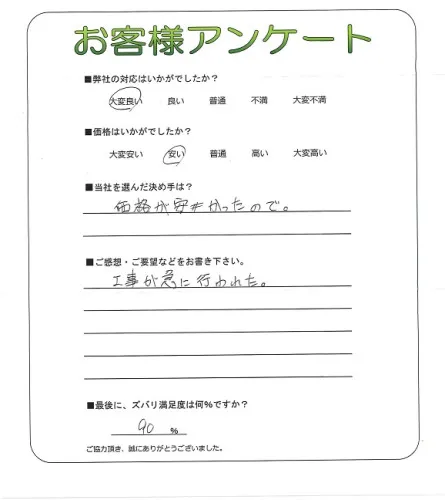 お客様アンケート
■弊社の対応はいかがでしたか？
大変良い 良い 普通 不満 大変不満
■価格はいかがでしたか？
大変安い 安い 普通 高い 大変高い
■当社を選んだ決め手は？
価格が安かったので。
■ご感想・ご要望などをお書き下さい。
工事が急に行われた。
■最後に、ズバリ満足度は何%ですか？
90 %
ご協力頂き、誠にありがとうございました。